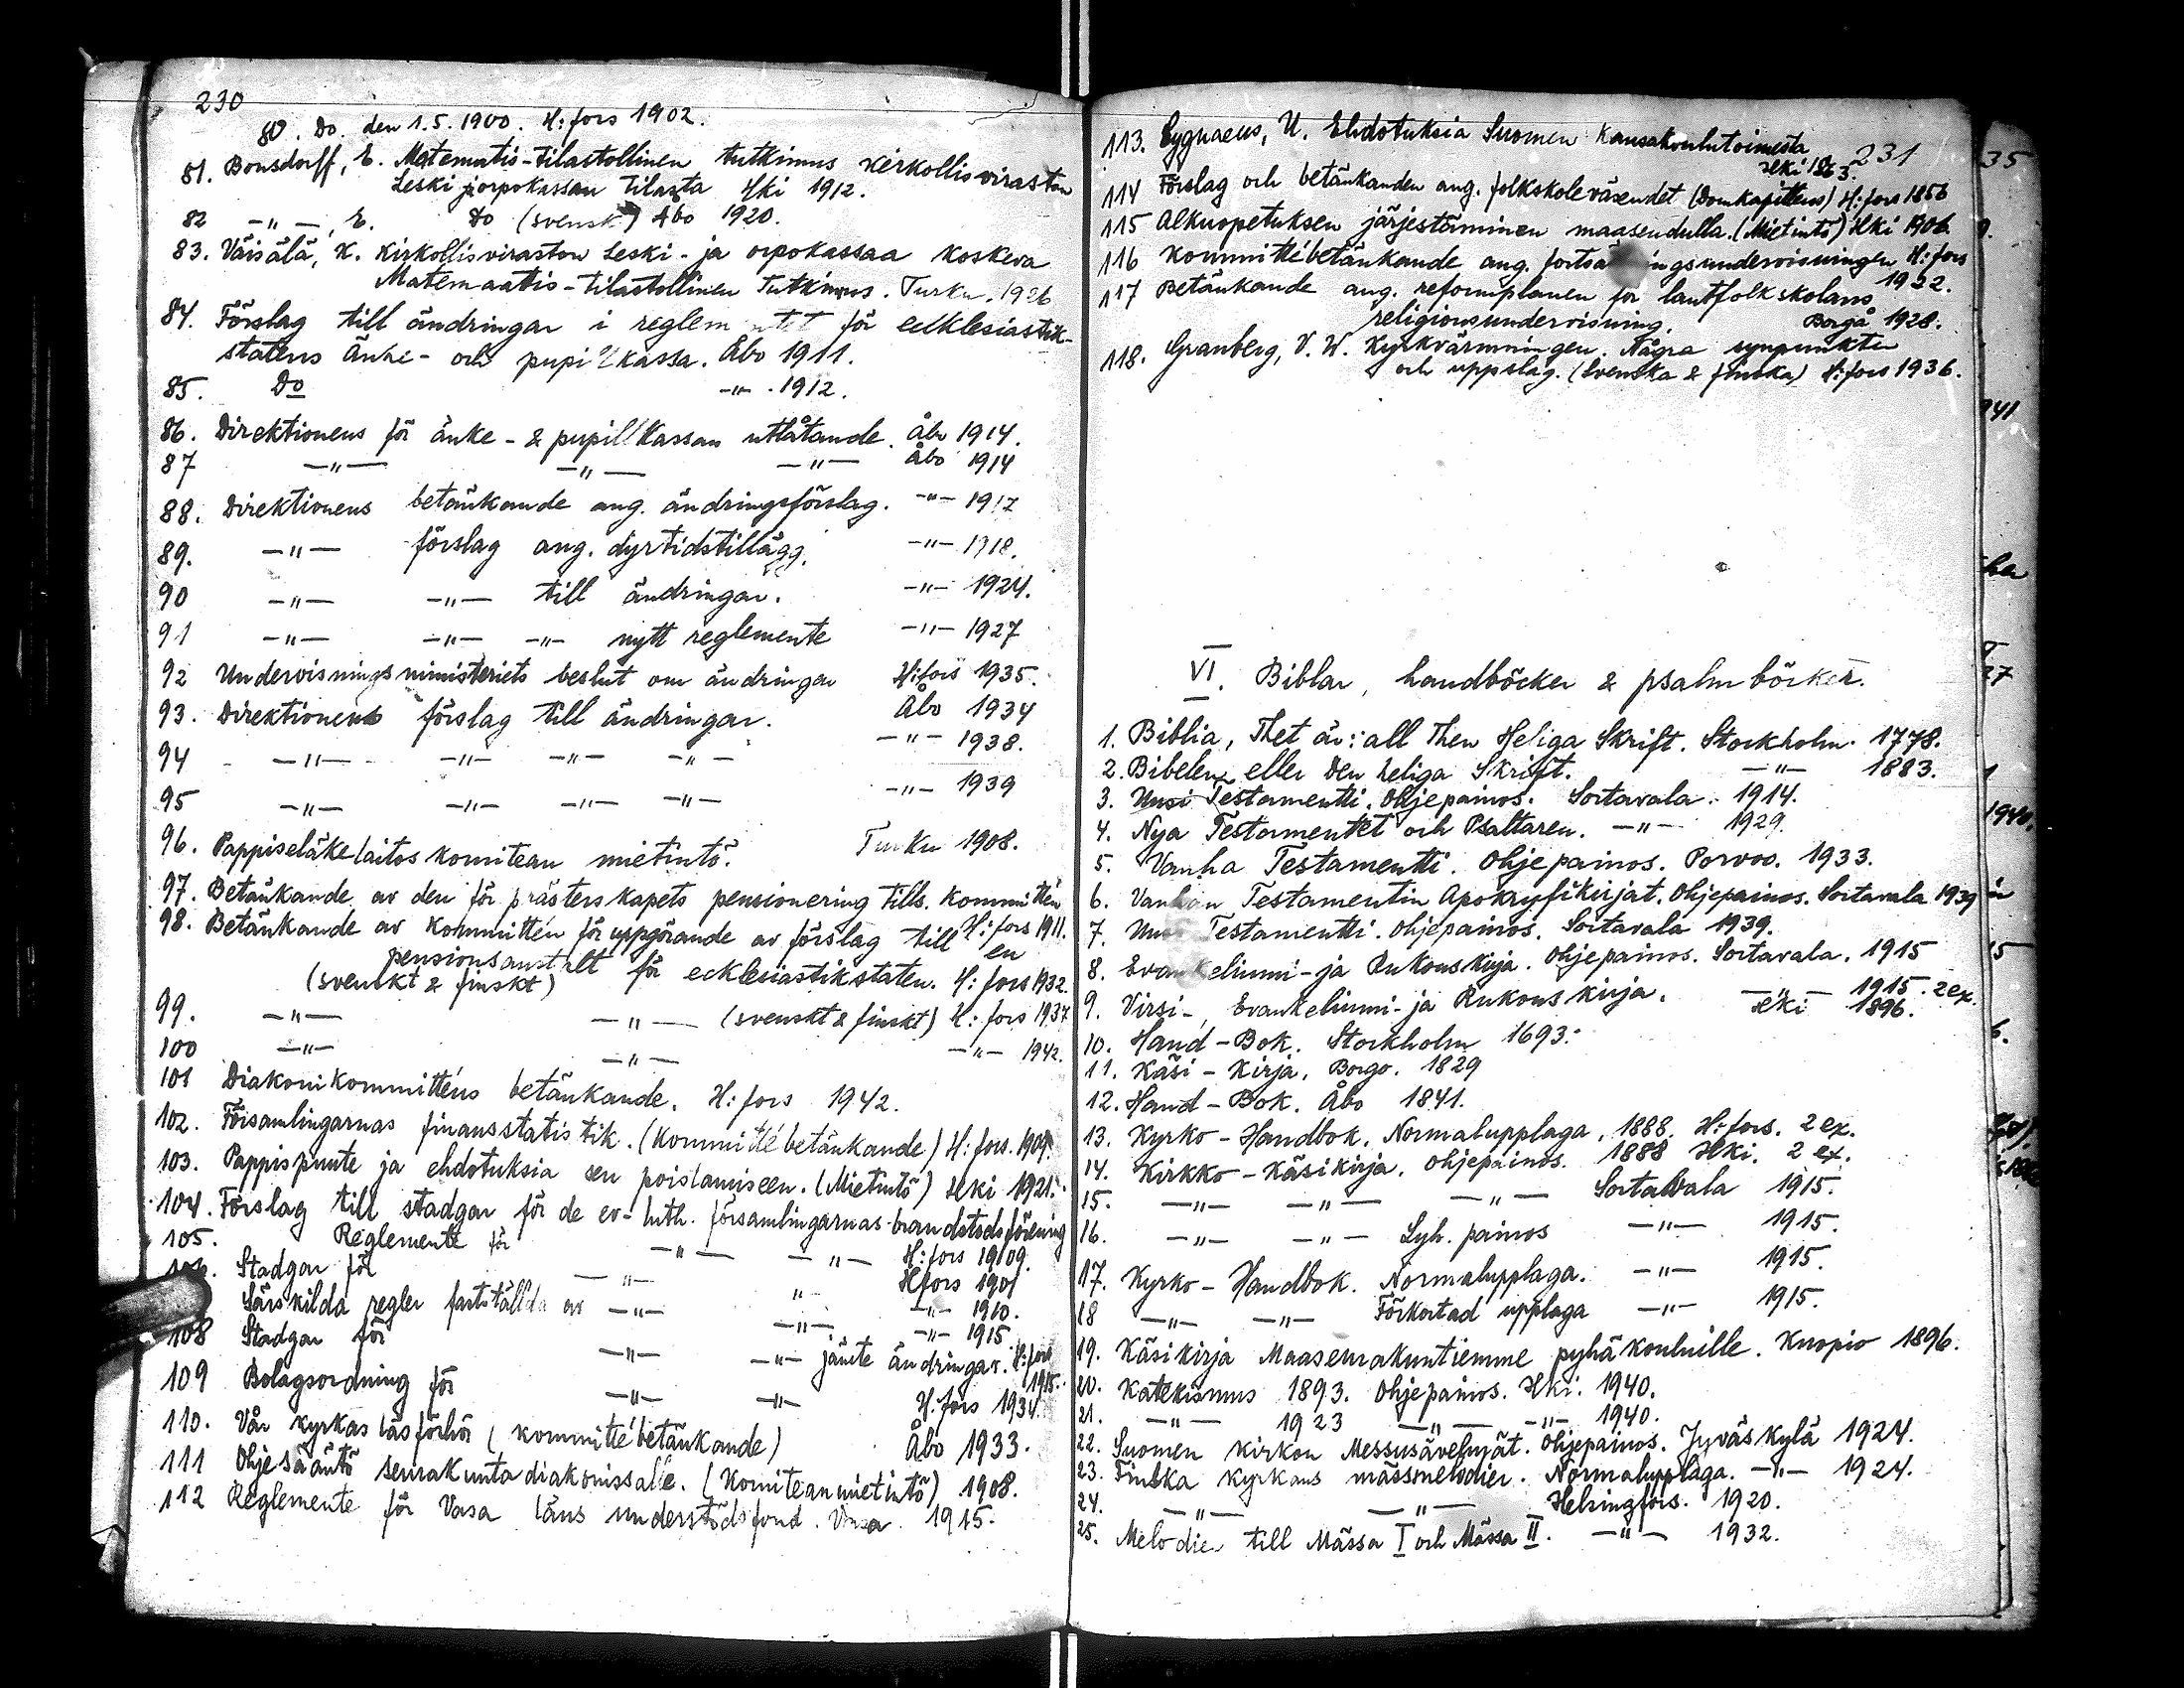 230
80. Do. den 1.5.1900. H:fors 1902.
81. Bonsdorff, E. Matematis-tilastollinen tutkimus kirkollisviraston
Leski j orpokassan tilasta Hki 1912.
82 -"-, E. Do (svensk) Åbo 1920.
83. Väisälä, K. Kirkollisviraston Leski- ja orpokassaa koskeva
Matemaattis-tilastollinen Tutkimus. Turku. 1926
84. Förslag till ändringar i reglementet för ecklesiastik-
statens änke- och pupillkassa. Åbo 1911.
85. Do -"- 1912.
86. Direktionens för änke- & pupillkassan utlåtande. Åbo 1914.
87 -"- -"- -"- Åbo 1914
88. Direktionens betänkande ang. ändringsförslag. -"- 1917
89. -"- förslag ang. dyrtidstillägg. -"- 1918.
90 -"- -"- till ändringar. -"- 1924.
91 -"- -"- -"- nytt reglemente -"- 1927
92 Undervisningsministeriets beslut om ändringar H:fors 1935.
93. Direktionens förslag till ändringar. Åbo 1934
94 -"- -"- -"- -"- -"- 1938.
95 -"- -"- -"- -"- -"- 1939
96. Pappiseläkelaitoskomitean mietintö. Turku 1908.
97. Betänkande av den för prästerskapets pensionering tills. kommittén
H:fors 1911.
98. Betänkande av kommittén för uppgörande av förslag till en
pensionsanstalt för ecklesiastikstaten. H:fors 1932.
(svenskt & finskt)
99. -"- -"- (svenskt & finskt) H:fors 1937
100 -"- -"- -"- 1942.
101 Diakonikommitténs betänkande. H:fors 1942.
102. Församlingarnas finansstatistik. (Kommittébetänkande) H:fors.
103. Pappispuute ja ehdotuksia sen poistamiseen. (Mietintö) Hki 1921.
104. Förslag till stadgar för de ev-luth. församlingarnas brandstodsförening
105. Reglemente för -"- -"- H:fors 1909.
106. Stadgar för -"- " Hfors 1901
Särskilda regler fastställda av -"- -"- -"- 1910.
108 Stadgar för -"- -"- 1915
-"- jämte ändringar. H:fors 1915.
109 Bolagsordning för -"- -"- H:fors 1934.
110. Vår kyrkas läsförhör (kommittébetänkande) Åbo 1933.
111 Ohjesääntö seurakuntadiakonissalle. (Komiteanmietintö) 1908.
112 Reglemente för Vasa läns understödsfond. Vasa 1915.
113. Cygnaeus, U. Ehdotuksia Suomen kansakoulutoimesta
Hki 1863. 231
114 Förslag och betänkanden ang. folkskoleväsendet (Domkapitlens) H:fors 1856
115 Alkuopetuksen järjestäminen maaseudulla. (Mietintö) Hki 1906
116 Kommittébetänkande ang. fortsättningsundervisningen H:fors
1932.
117 Betänkande ang. reformplanen för lantfolkskolans
religionsundervisning. Borgå 1928.
118. Granberg, V. W. Kyrkvärmningen. Några synpunkter
och uppslag. (Svenska & finska) H:fors 1936.
VI. Biblar, handböcker & psalmböcker.
1. Biblia, Thet är: all Then Heliga Skrift. Stockholm. 1778.
2. Bibelen eller Den heliga Skrift. -"- 1883.
3. Uusi Testamentti. Ohjepainos. Sortavala. 1914.
4. Nya Testamentet och Psaltaren. -"- 1929.
5. Vanha Testamentti. Ohjepainos. Porvoo. 1933.
6. Vanhan Testamentin Apokryfikirjat. Ohjepainos. Sortavala 1939
7. Uusi Testamentti. Ohjepainos. Sortavala 1939.
8. Evankeliumi- ja Rukouskirja. Ohjepainos. Sortavala. 1915
-"- 1915. 2 ex.
9. Virsi-, Evankeliumi- ja Rukouskirja. Hki 1896.
10. Hand-Bok. Stockholm 1693.
11. Käsi-Kirja. Borgo. 1829
12. Hand-Bok. Åbo 1841.
13. Kyrko-Handbok. Normalupplaga. 1888. H:fors. 2 ex.
14. Kirkko-Käsikirja. Ohjepainos. 1888 Hki. 2 ex.
15. -"- -"- -"- Sortavala 1915.
16. -"- -"- Lyh. painos -"- 1915.
17. Kyrko-Handbok. Normalupplaga. -"- 1915.
18 -"- -"- Förkortad upplaga -"- 1915.
19. Käsikirja Maaseurakuntiemme pyhäkouluille. Kuopio 1896.
20. Katekismus 1893. Ohjepainos. Hki. 1940.
21. -"- 1923 -"- -"- 1940.
22. Suomen kirkon Messusävelmät. Ohjepainos. Jyväskylä 1924.
23. Finska kyrkans mässmelodier. Normalupplaga. -"- 1924.
24. -"- -"- Helsingfors. 1920.
25. Melodier till Mässa I och Mässa II. -"- 1932.